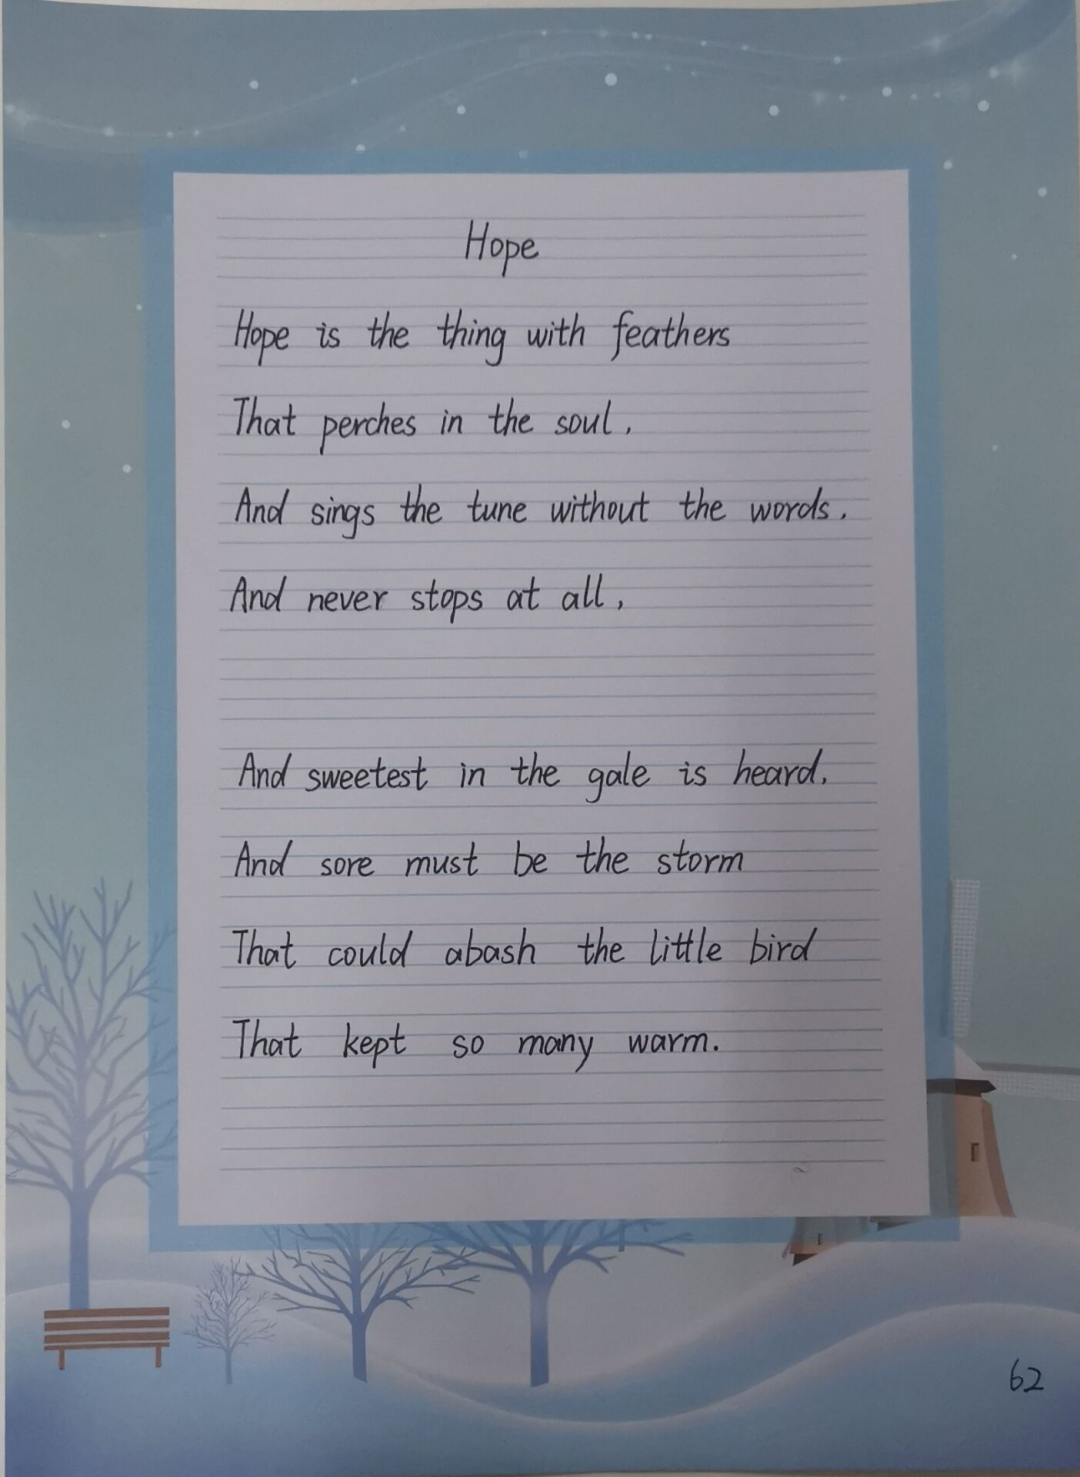 Hope
Hope is the thing with feathers
That perches in the soul,
And sings the tune without the words.
And never stops at all,
And sweetest in the gale is heard.
And sore must be the storm
That could abash the little bird
That kept so many warm.
62